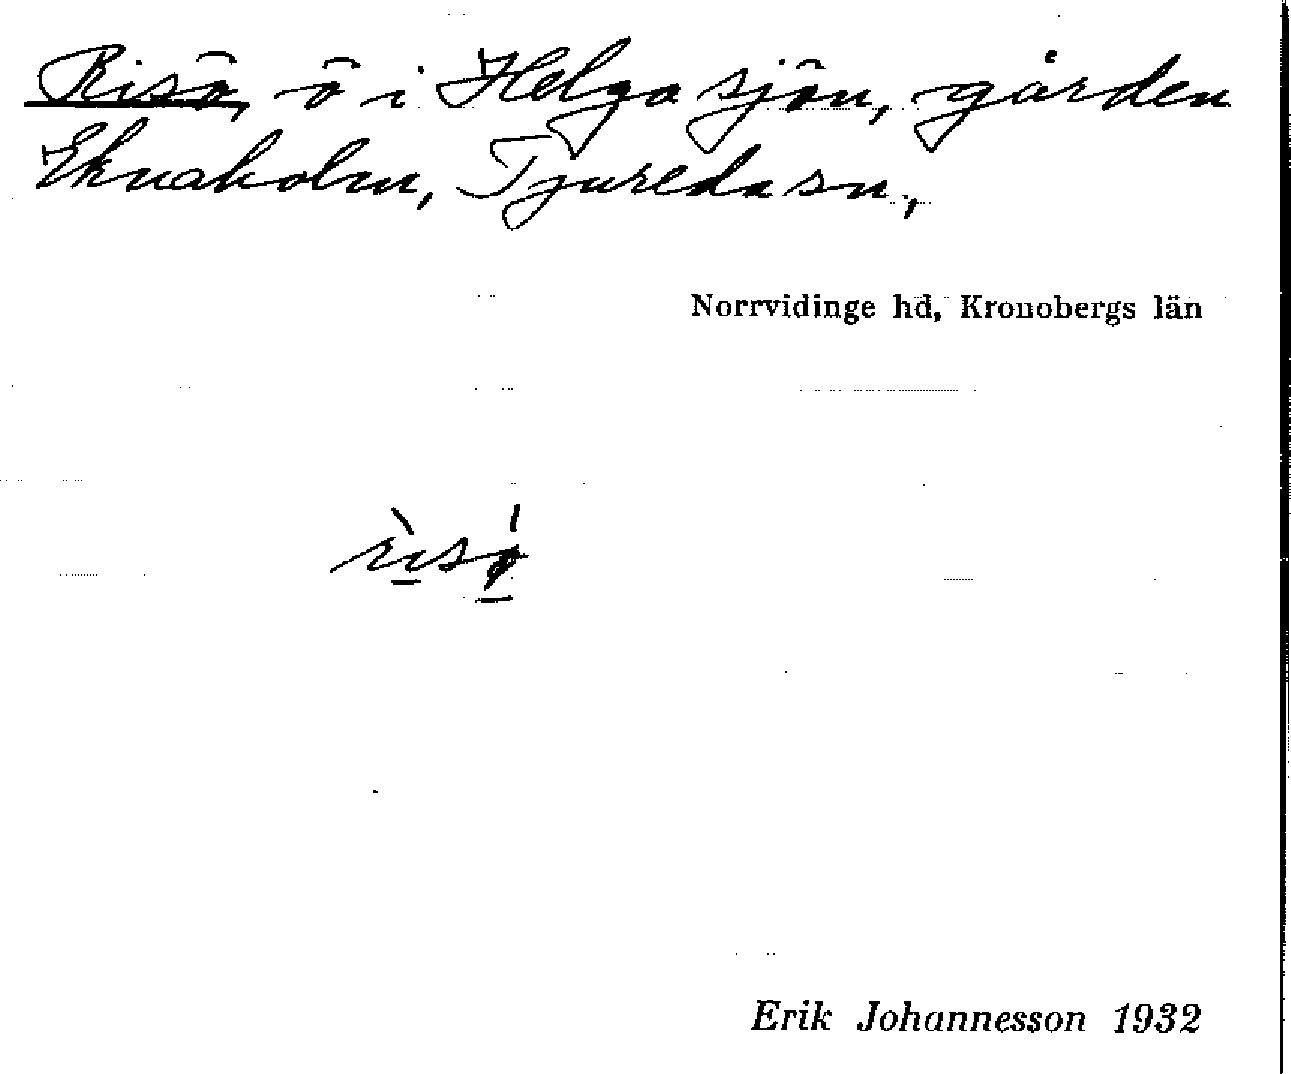 Risö, ö i Helgasjön, gården
Eknaholm, Tjureda sn,
Norrvidinge hd, Kronobergs län
Erik Johannesson 1932